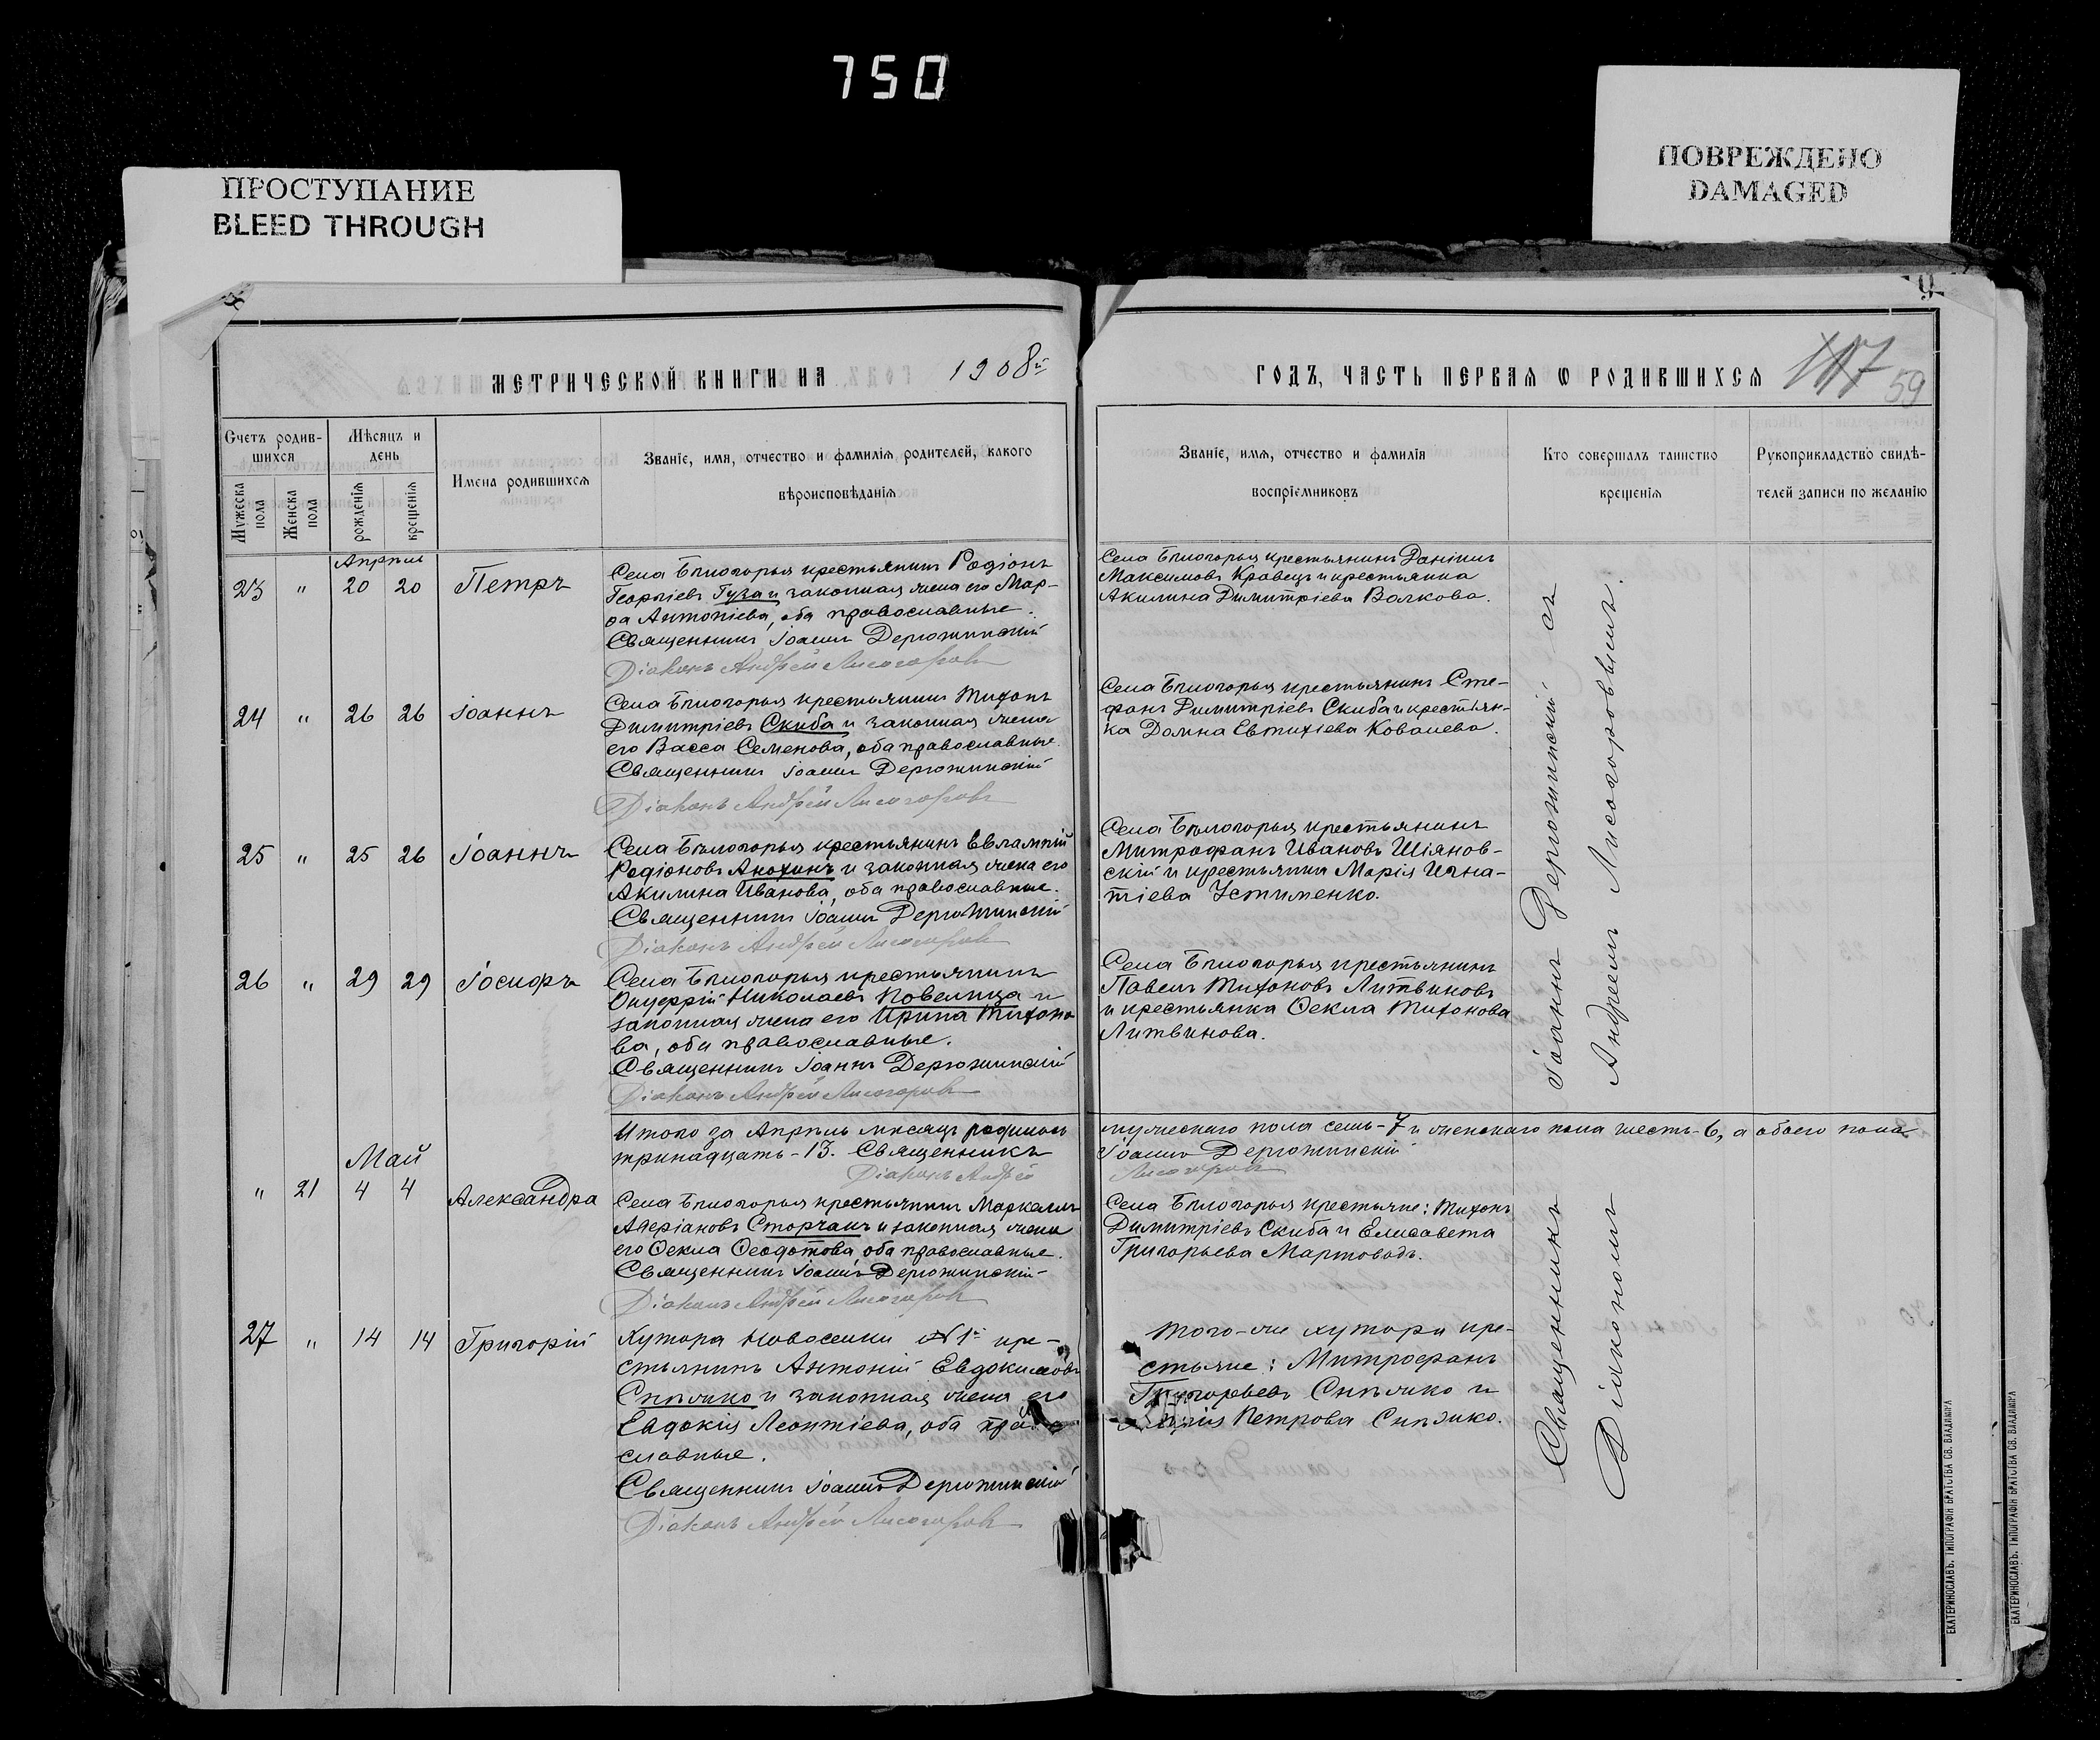 750
ПРОСТУПАНИЕ
BLEED THROUGH
ПОВРЕЖДЕНО
DAMAGED
МЕТРИЧЕСКОЙ КНИГИ НА 1908й
ГОДЪ, ЧАСТЬ ПЕРВАЯ Ѡ РОДИВШИХСЯ
59
Счетъ родив-
шихся
Мѣсяцъ и
день
Имена родившихся
Званіе, имя, отчество и фамилія родителей, какого
вѣроисповѣданія
Мужеска пола
Женска пола
рожденія
крещенія
Званіе, имя, отчество и фамилія
воспріемниковъ
Кто совершалъ таинство
крещенія
Рукоприкладство свидѣ-
телей записи по желанію
Апрѣль
23 " 20 20 Петръ
Села Бѣлогорья крестьянинъ Родіонъ
Георгіевъ Гуза и законная жена его Мар-
ѳа Антоніева, оба православные.
Священникъ Іоаннъ Дерюжинскій
Діаконъ Андрей Лисогоровъ
Села Бѣлогорья крестьянинъ Даніилъ
Максимовъ Кравецъ и крестьянка
Акилина Димитріева Волкова.
24 " 26 26 Іоаннъ
Села Бѣлогорья крестьянинъ Тихонъ
Димитріевъ Скиба и законная жена
его Васса Семенова, оба православные.
Священникъ Іоаннъ Дерюжинскій
Діаконъ Андрей Лисогоровъ
Села Бѣлогорья крестьянинъ Сте-
фанъ Димитріевъ Скиба и крестьян-
ка Домна Евтихіева Ковалева.
25 " 25 26 Іоаннъ
Села Бѣлогорья крестьянинъ Евлампій
Родіоновъ Анохинъ и законная жена его
Акилина Иванова, оба православные.
Священникъ Іоаннъ Дерюжинскій
Діаконъ Андрей Лисогоровъ
Села Бѣлогорья крестьянинъ
Митрофанъ Ивановъ Шіянов-
скій и крестьянка Марія Игна-
тіева Устименко.
26 " 29 29 Іосифъ
Села Бѣлогорья крестьянинъ
Онуфрій Николаевъ Повелица и
законная жена его Ирина Тихоно
ва, оба православные.
Священникъ Іоаннъ Дерюжинскій
Діаконъ Андрей Лисогоровъ
Села Бѣлогорья крестьянинъ
Павелъ Тихоновъ Литвиновъ
и крестьянка Ѳекла Тихонова
Литвинова.
Итого за Апрѣль мѣсяцъ родилось мужескаго пола семь-7 и женскаго пола шесть-6, а обоего пола
тринадцать-13. Священникъ Іоаннъ Дерюжинскій
Діаконъ Андрей Лисогоровъ
Май
" 21 4 4 Александра
Села Бѣлогорья крестьянинъ Маркеллъ
Адріановъ Сторчакъ и законная жена
его Ѳекла Ѳеодотова, оба православные.
Священникъ Іоаннъ Дерюжинскій
Діаконъ Андрей Лисогоровъ
Села Бѣлогорья крестьяне: Тихонъ
Димитріевъ Скиба и Елисавета
Григорьева Мартоводъ.
27 " 14 14 Григорій
Хутора Новоселки №1й кре-
стьянинъ Антоній Евдокимовъ
Снѣжко и законная жена его
Евдокія Леонтіева, оба право
славные.
Священникъ Іоаннъ Дерюжинскій
Діаконъ Андрей Лисогоровъ
Того-же хутора кре-
стьяне: Митрофанъ
Григорьевъ Снѣжко и
Петрова Снѣжко.
Священникъ Іоаннъ Дерюжинскій съ
Діакономъ Андреемъ Лисогоровымъ.
ЕКАТЕРИНОСЛАВЪ. ТИПОГРАФІЯ БРАТСТВА СВ. ВЛАДИМІРА
ЕКАТЕРИНОСЛАВЪ. ТИПОГРАФІЯ БРАТСТВА СВ. ВЛАДИМІРА